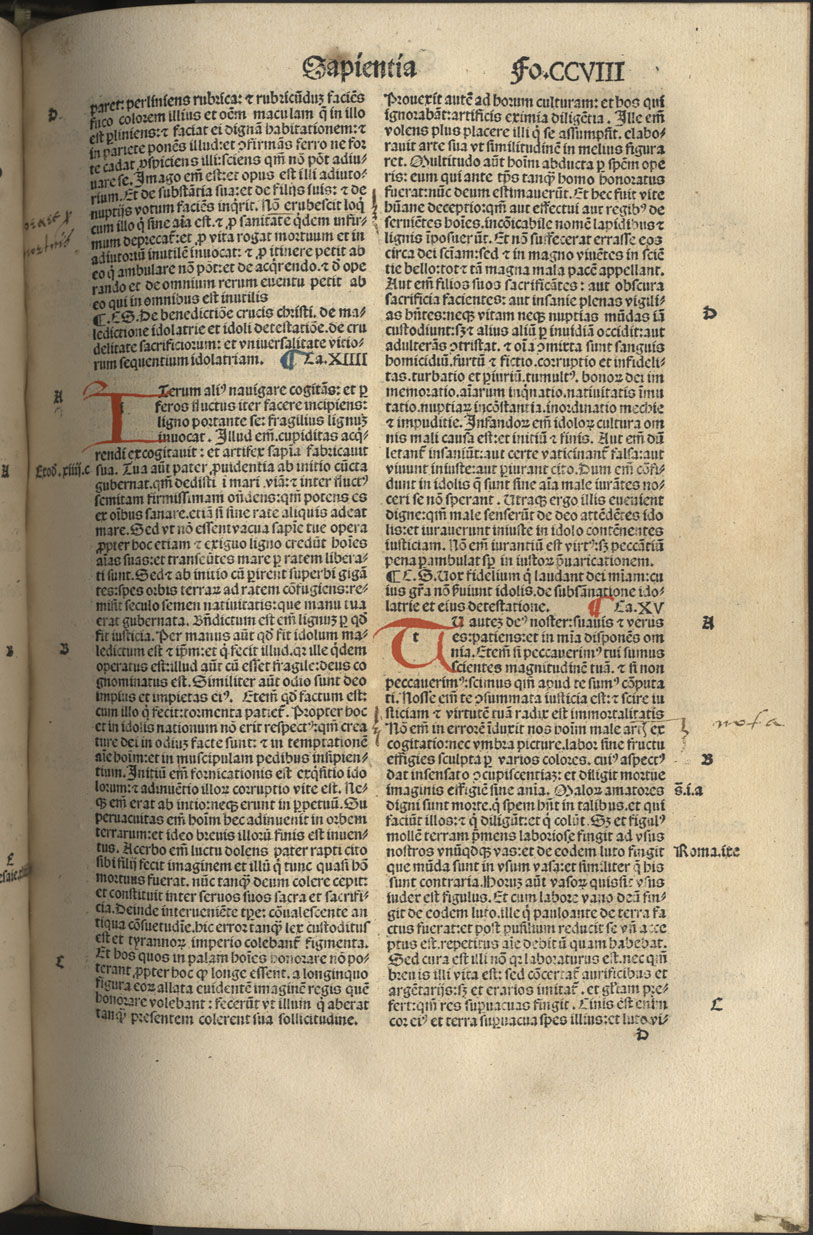 Sapientia Fo.CCVIII
paret: perliniens rubrica: ⁊ rubricūduȝ faciēs
fuco colorem illius et oēm maculam q̄ in illo
est ꝑliniens: ⁊ faciat ei dignā habitationem: ⁊
in pariete ponēs illud: et ꝯfirmās ferro ne for
te cadat ꝓspiciens illi: sciens qm̄ nō pōt adiu⸗
uare se. Imago em̄ est: et opus est illi adiuto⸗
rium. Et de substātia sua: et de filijs suis: ⁊ de
nuptijs votum faciēs inq̄rit. Nō erubescit loq
cum illo q̄ sine aīa est. ⁊ ꝓ sanitate qdem infir⸗
mum deprecat᷑: et ꝓ vita rogat mortuum et in
adiutoriū inutilē inuocat: ⁊ ꝓ itinere petit ab
eo q̄ ambulare nō pōt: et de acq̄rendo. ⁊ ō ope
rando et de omnium rerum euentu petit ab
eo qui in omnibus est inutilis
¶ C. S. De benedictiōe crucis christi. de ma⸗
ledictione idolatrie et idoli detestatiōe. de cru
delitate sacrificiorum: et vniuersalitate vitio⸗
rum sequentium idolatriam. ¶ Ca. XIIII
A
ITerum aliꝰ nauigare cogitās: et ꝑ
feros fluctus iter facere incipiens:
ligno portante se: fragilius lignuȝ
inuocat. Illud em̄. cupiditas acq̄⸗
rendi excogitauit: et artifex sapīa fabricauit
Exod. xiiij. c
sua. Tua aūt pater ꝓuidentia ab initio cūcta
gubernat. qm̄ dedisti ī mari viā: ⁊ inter fluctꝰ
semitam firmissimam oñdens: qm̄ potens es
ex oībus sanare. etiā si sine rate aliquis adeat
mare. Sed vt nō essent vacua sapīe tue opera
ꝓpter hoc etiam ⁊ exiguo ligno credūt hoīes
aīas suas: et transeūtes mare ꝑ ratem libera⸗
ti sunt. Sed ⁊ ab initio cū ꝑirent superbi gigā
tes: spes orbis terraꝝ ad ratem cōfugiens: re⸗
misit seculo semen natiuitatis: que manu tua
erat gubernata. Bñdictum est em̄ lignuȝ ꝑ qd̄
fit iusticia. Per manus aūt qd̄ fit idolum ma⸗
B
ledictum est ⁊ ip̄m: et q̄ fecit illud. qꝛ ille qdem
operatus est: illud aūt cū esset fragile: deus co
gnominatus est. Similiter aūt odio sunt deo
impius et impietas eiꝰ. Etem̄ qd̄ factum est:
cum illo q̄ fecit: tormenta patiet᷑. Propter hoc
et in idolis nationum nō erit respectꝰ: qm̄ crea
ture dei in odiuȝ facte sunt: ⁊ in temptationē
aīe hoīm: et in muscipulam pedibus insipien⸗
tium. Initiū em̄ fornicationis est exq̄sitio ido
lorum: ⁊ adinuētio illoꝝ corruptio vite est. Ne⸗
qꝫ em̄ erat ab initio: neqꝫ erunt in ꝑpetuū. Su
peruacuitas em̄ hoīm hec adinuenit in orbem
terrarum: et ideo breuis illorū finis est inuen⸗
tus. Acerbo em̄ luctu dolens pater rapti cito
sibi filij fecit imaginem et illū q̄ tunc quasi hō
mortuus fuerat. nūc tanqꝫ deum colere cepit:
et constituit inter seruos suos sacra et sacrifi⸗
cia. Deinde interueniēte tꝑe: cōualescente an
tiqua cōsuetudīe: hic error tanqꝫ lex custoditus
est et tyrannoꝝ imperio colebant᷑ figmenta.
C
Et hos quos in palam hoīes honorare nō po⸗
terant, ꝓpter hoc ꝙ longe essent. a longinquo
figura eoꝝ allata euidentē imaginē regis quē
honorare volebant: fecerūt vt illum q̄ aberat
tanqꝫ presentem colerent sua sollicitudine.
Prouexit autē ad horum culturam: et hos qui
ignorabāt: artificis eximia diligētia. Ille em̄
volens plus placere illi q̄ se assumpsit. elabo⸗
rauit arte sua vt similitudinē in melius figura
ret. Multitudo aūt hoīm abducta ꝑ spēm ope
ris: eum qui ante tp̄s tanqꝫ homo honoratus
fuerat: nūc deum estimauerūt. Et hec fuit vite
hūane deceptio: qm̄ aut effectui aut regibꝰ de
seruiētes hoīes. incōicabile nomē lapidibus ⁊
lignis īposuerūt. Et nō suffecerat errasse eos
circa dei sciam: sed ⁊ in magno viuētes in scien
tie bello: tot ⁊ tā magna mala pacē appellant.
Aut em̄ filios suos sacrificātes: aut obscura
sacrificia facientes: aut insanie plenas vigili⸗
D
as hñtes: neqꝫ vitam neqꝫ nuptias mūdas iā
custodiunt: sȝ ⁊ alius aliū ꝑ inuidiā occidit: aut
adulterās ꝯtristat. ⁊ oīa ꝯmixta sunt sanguis
homicidiū. furtū ⁊ fictio. corruptio et infideli⸗
tas. turbatio et ꝑiuriū. tumultꝰ. bonoꝝ dei im
memoratio. aīarum inqnatio. natiuitatis īmu
tatio. nuptiaꝝ incōstantia. inordinatio mechie
⁊ impuditie. Infandoꝝ em̄ idoloꝝ cultura om
nis mali causa est: et initiū ⁊ finis. Aut em̄ dū
letant᷑ insaniūt: aut certe vaticinant᷑ falsa: aut
viuunt iniuste: aut ꝑiurant cito. Dum em̄ cōfi⸗
dunt in idolis q̄ sunt sine aīa male iurātes no⸗
ceri se nō sperant. Utraqꝫ ergo illis euenient
digne: qm̄ male senserūt de deo attēdētes ido
lis: et iurauerunt iniuste in idolo contēnentes
iusticiam. Nō em̄ iurantiū est virtꝰ: sȝ peccātiū
pena ꝑambulat sp̄ in iustoꝝ p̄uaricationem.
¶ C. S. Uox fidelium q̄ laudant dei mīam: cu
ius gr̄a nō ẜuiunt idolis. de subsānatione ido⸗
latrie et eius detestatione. ¶ Ca. XV
A
TU auteȝ deꝰ noster: suauis ⁊ verus
es: patiens: et in mīa disponēs om
nia. Etem̄ si peccauerimꝰ tui sumus
scientes magnitudinē tuā. ⁊ si non
peccauerimꝰ: scimus qm̄ apud te sumꝰ cōputa
ti. Nosse em̄ te ꝯsummata iusticia est: ⁊ scire iu
sticiam ⁊ virtutē tuā radix est immortalitatis
nota
Nō em̄ in errorē īduxit nos hoīm male artis ex
cogitatio: nec vmbra picture. labor sine fructu
B
effigies sculpta ꝑ varios colores. cuiꝰ aspectꝰ
dat insensato ꝯcupiscentiaȝ: et diligit mortue
imaginis effigiē sine anīa. Maloꝝ amatores
s. i. a
digni sunt morte. q̄ spem hñt in talibus. et qui
faciūt illos: ⁊ q̄ diligūt: et q̄ colūt. Sȝ et figulꝰ
mollē terram p̄mens laboriose fingit ad vsus
nostros vnūqdqꝫ vas: et de eodem luto fingit
Roma. ite
que mūda sunt in vsum vasa: et similiter q̄ his
sunt contraria. Horuȝ aūt vasoꝝ quis sit vsus
iudex est figulus. Et cum labore vano deū fin⸗
git de eodem luto. ille q̄ pauloante de terra fa
ctus fuerat: et post pusillum reducit se vñ acce
ptus est. repetitus aīe debitū quam habebat.
Sed cura est illi nō qꝛ laboraturus est. nec qm̄
breuis illi vita est: sed cōcertat᷑ aurificibus et
argētarijs: sȝ et erarios imitat᷑. et gl̄iam pre⸗
C
fert: qm̄ res suꝑuacuas fingit. Cinis est enim
cor eiꝰ et terra suꝑuacua spes illius: et luto vi⸗
D